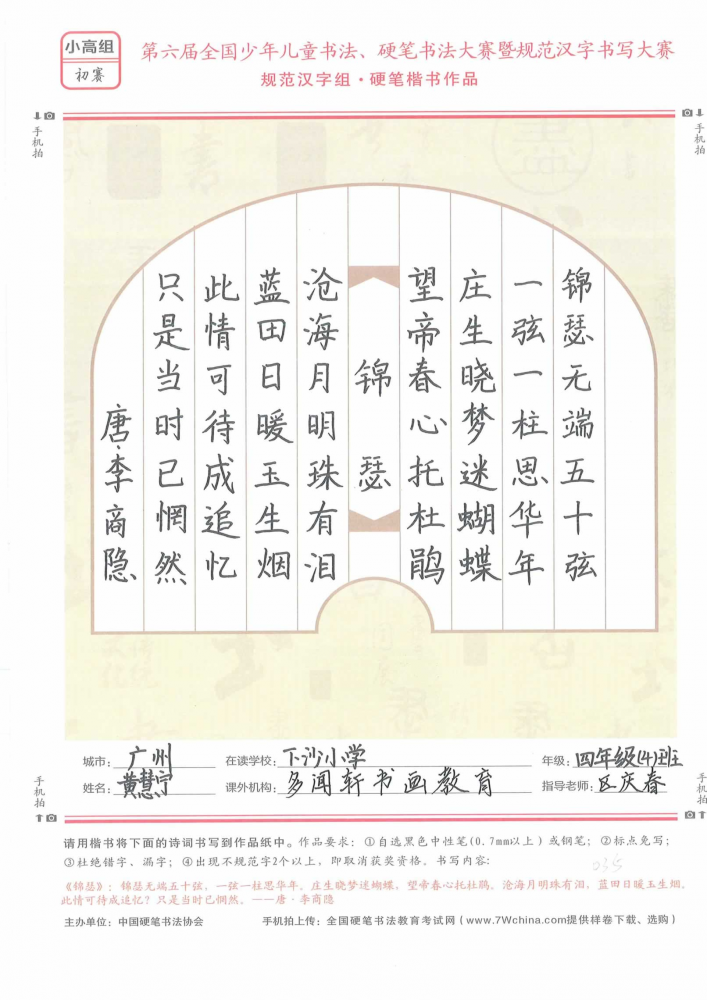 小高组
初赛
第六届全国少年儿童书法、硬笔书法大赛暨规范汉字书写大赛
规范汉字组·硬笔楷书作品
手机拍
手机拍
锦瑟无端五十弦
一弦一柱思华年
庄生晓梦迷蝴蝶
望帝春心托杜鹃
锦瑟
沧海月明珠有泪
蓝田日暖玉生烟
此情可待成追忆
只是当时已惘然
唐·李商隐
城市：广州 在读学校：下沙小学 年级：四年级(4)班
姓名：黄慧宁 课外机构：多闻轩书画教育 指导老师：区庆春
手机拍
手机拍
请用楷书将下面的诗词书写到作品纸中。作品要求：①自选黑色中性笔(0.7mm以上)或钢笔；②标点免写；
③杜绝错字、漏字；④出现不规范字2个以上，即取消获奖资格。书写内容：
035
《锦瑟》：锦瑟无端五十弦，一弦一柱思华年。庄生晓梦迷蝴蝶，望帝春心托杜鹃。沧海月明珠有泪，蓝田日暖玉生烟。
此情可待成追忆？只是当时已惘然。——唐·李商隐
主办单位：中国硬笔书法协会 手机拍上传：全国硬笔书法教育考试网（www.7Wchina.com提供样卷下载、选购）